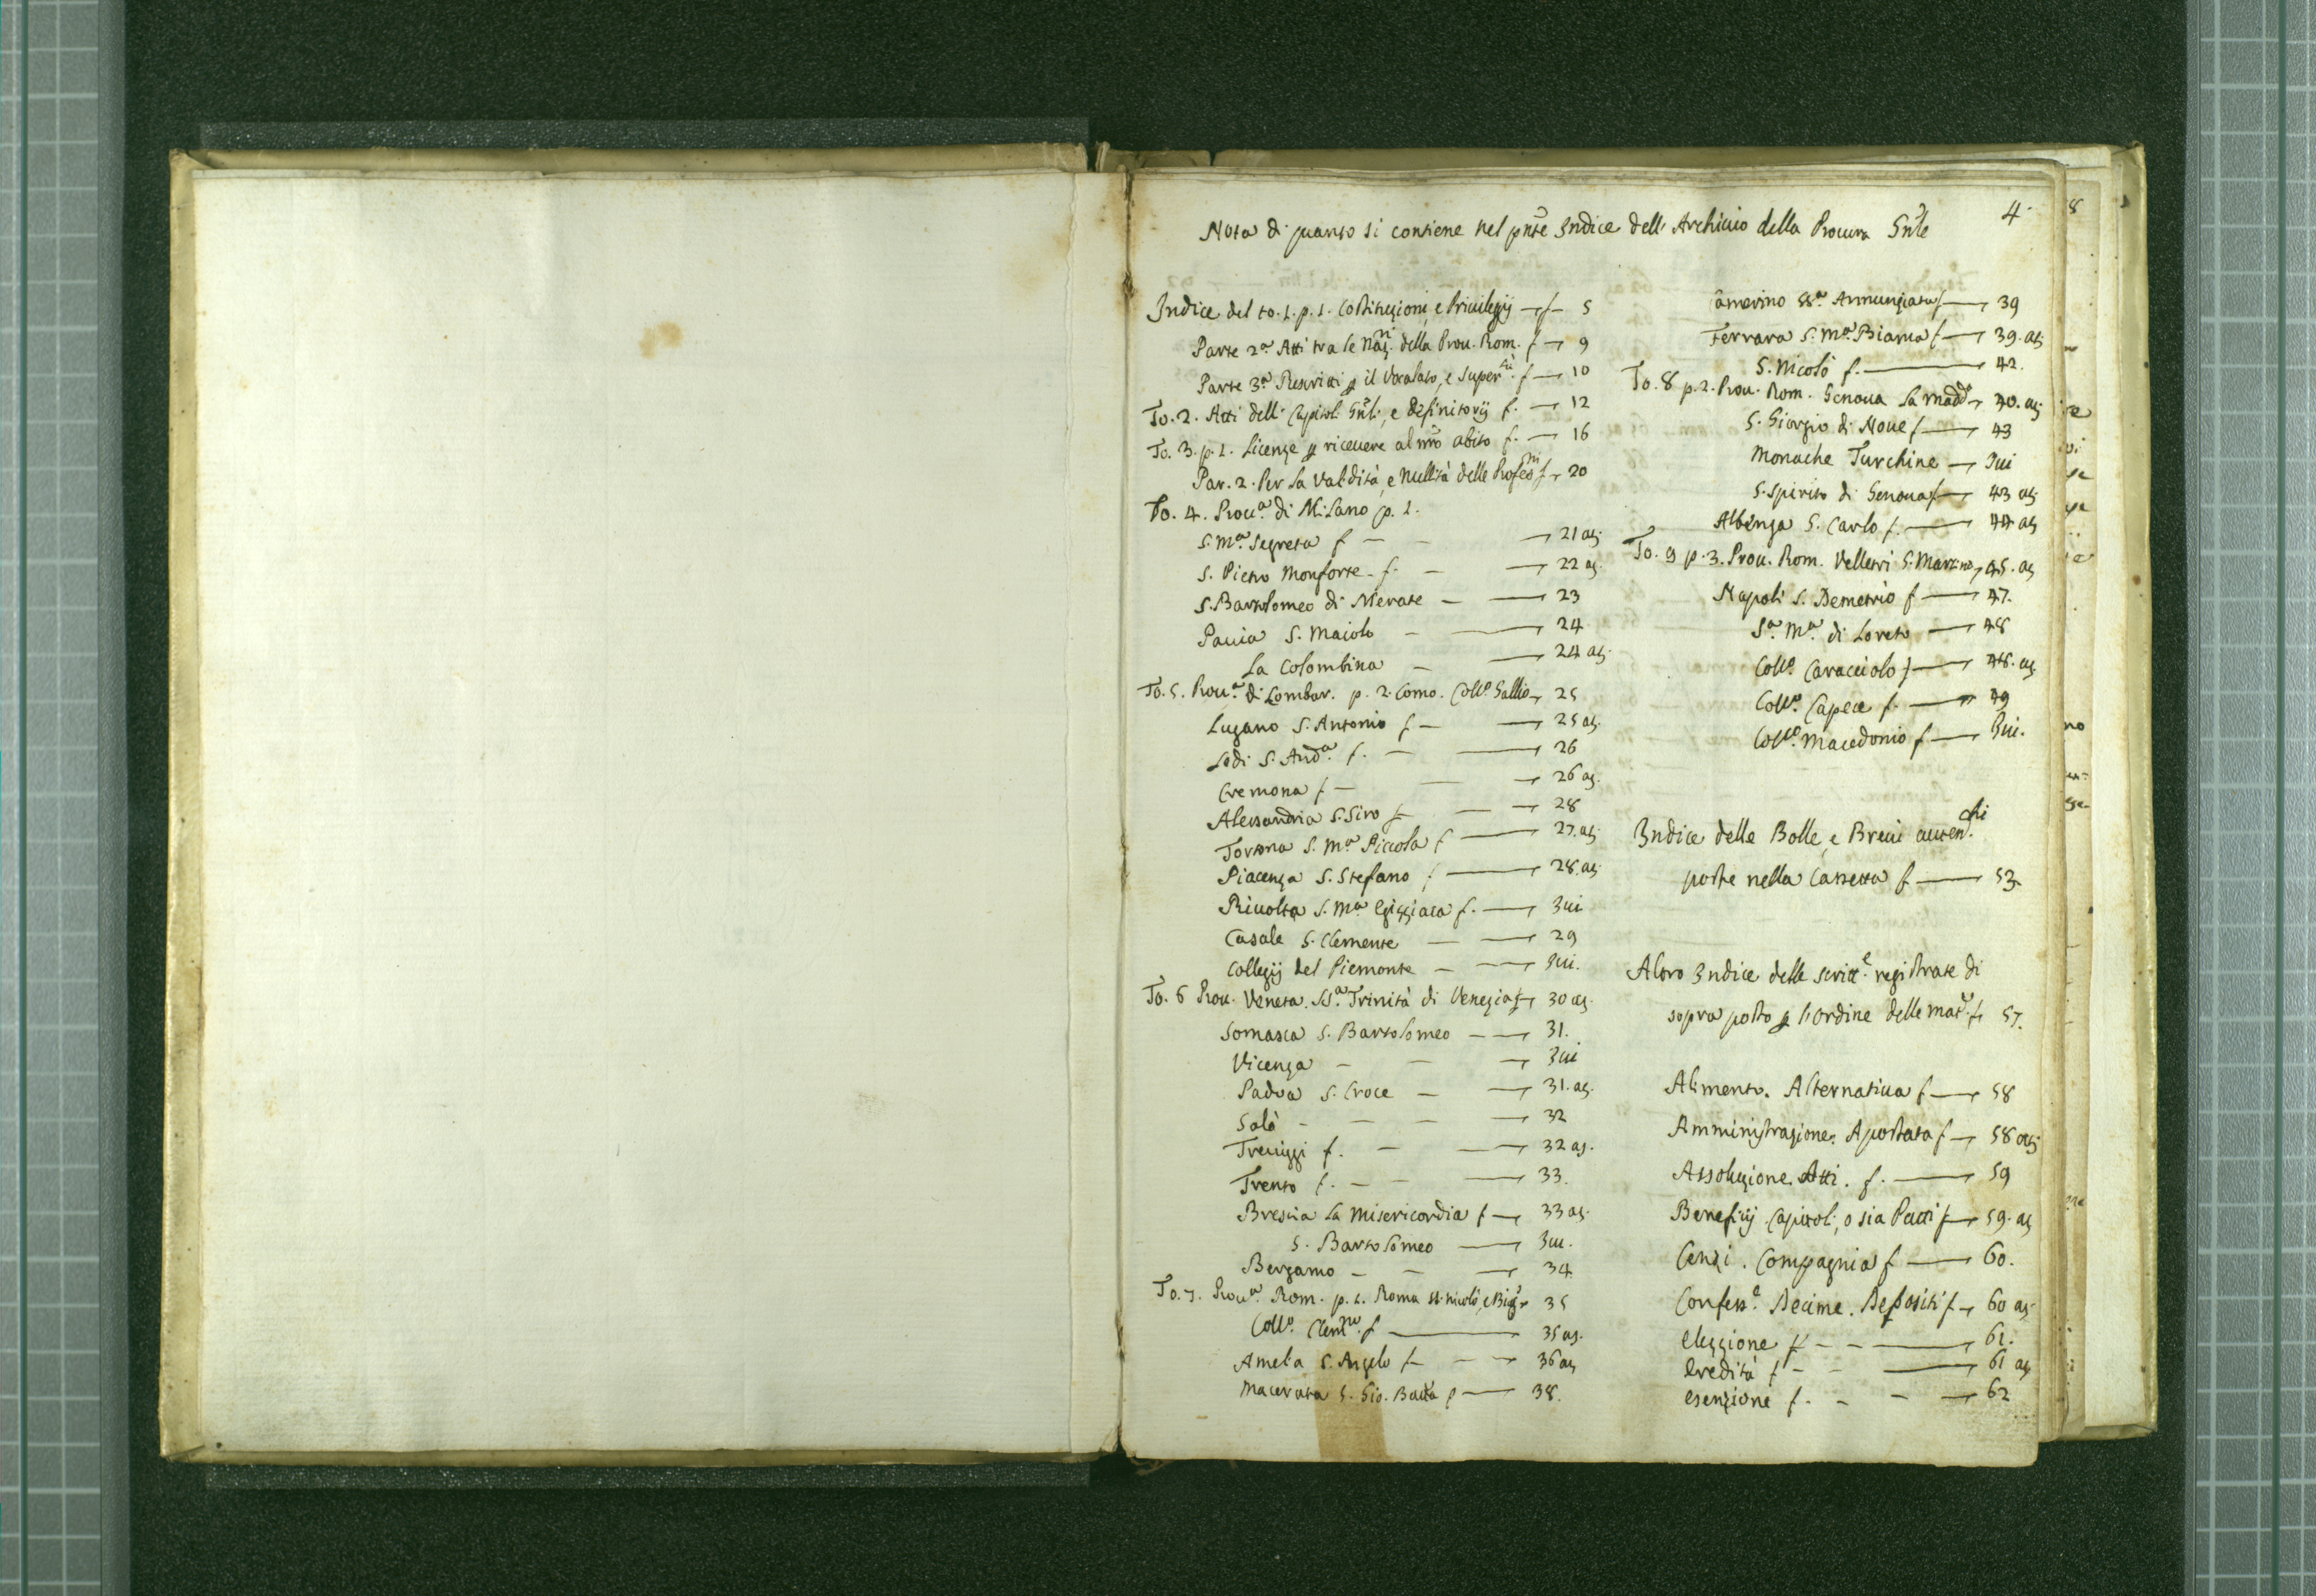 4.
Nota di quanto si contiene nel pnte Indice dell' Archivio della Procura Gnle
Indice del to. 1. p. 1. Costituzioni, e Privilegij — f — 5
Parte 2ª Atti tra le Naz.ni della Prov. Rom. f — 9
Parte 3ª Rescritti p il Vocalato, e Super.tà f — 10
To. 2. Atti delli Capitoli Gnli, e Definitorij f. — 12
To. 3. p. 1. Licenze p ricevere al nro abito f. — 16
Par. 2. Per la validità, e Nullità delle Profess.ni f — 20
To. 4. Prov.ª di Milano p. 1.
S. Mª Segreta f — — 21 aj
S. Pietro Monforte f. — — 22 aj
S. Bartolomeo di Merate — — 23
Pavia S. Maiolo — — 24
La Colombina — — 24 aj
To. 5. Prov.ª di Lombar. p. 2. Como. Coll.o Gallio — 25
Lugano S. Antonio f — — 25 aj.
Lodi S. And.ª f. — — 26
Cremona f — — 26 aj.
Alessandria S. Siro f — — 28
Tortona S. Mª Piccola f — 27. aj
Piacenza S. Stefano f — 28. aj
Rivolta S. Mª Egizziaca f. — Ivi
Casale S. Clemente — — 29
Collegij del Piemonte — — Ivi.
To. 6 Prov. Veneta. SS.ª Trinità di Venezia f — 30 aj.
Somasca S. Bartolomeo — — 31.
Vicenza — — — Ivi
Padva S. Croce — — 31. aj.
Salò — — — 32
Treviggi f. — — 32 aj.
Trento f. — — — 33.
Brescia la Misericordia f — 33 aj.
S. Bartolomeo — Ivi.
Bergamo — — — 34
To. 7. Prov.ª Rom. p. 1. Roma SS. Nicolò, e Biag.o 35
Coll.o Clem.no f — 35 aj.
Amelia S. Angelo f — — 36 aj
Macerata S. Gio. Batta f — 38.
Camerino SS.ª Annunziata f — 39
Ferrara S. Mª Bianca f — 39. aj
S. Nicolò f. — 42.
To. 8 p. 2. Prov. Rom. Genova la Madd.ª 40. aj
S. Giorgio di Nove f — 43
Monache Turchine — Ivi
S. Spirito di Genova f — 43 aj
Albenga S. Carlo f. — 44 aj
To. 9 p. 3. Prov. Rom. Velletri S. Martino, 45. aj
Napoli S. Demetrio f — 47.
Sª Mª di Loreto — 48
Coll.o Caracciolo f — 48. aj
Coll.o Capece f. — 49
Coll.o Macedonio f — Ivi.
Indice delle Bolle, e Brevi auten.chi
poste nella Cassetta f — 53
Altro Indice delle scritt.e registrate di
sopra posto p l'ordine delle mat.e f 57.
Alimento. Alternativa f — 58
Amministrazione. Apostata f — 58 aj
Assoluzione. Atti. f. — 59
Beneficij Capitoli, o sia Patti f — 59. aj
Censi. Compagnia f — 60.
Confess.e Decime. Depositi f — 60 aj.
Elezzione f — — 61.
Eredità f — — 61 aj
Esenzione f. — — — 62